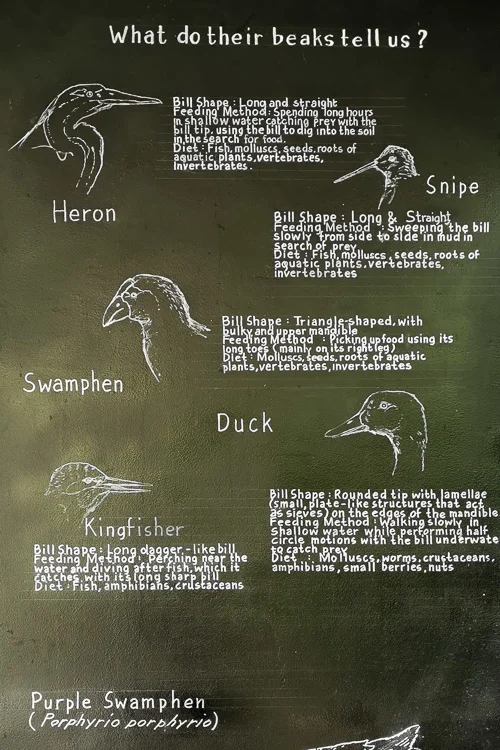 What do their beaks tell us ?
Bill Shape : Long and straight
Feeding Method : Spending long hours
in shallow water catching prey with the
bill tip, using the bill to dig into the soil
in the search for food.
Diet : Fish, molluscs, seeds, roots of
aquatic plants, vertebrates,
invertebrates .
Heron
Snipe
Bill Shape : Long & Straight
Feeding Method : Sweeping the bill
slowly from side to side in mud in
search of prey
Diet : Fish, molluscs , seeds, roots of
aquatic plants, vertebrates,
invertebrates
Bill Shape : Triangle-shaped, with
bulky and upper mandible
Feeding Method : Picking up food using its
long toes (mainly on its right leg)
Diet : Molluscs, seeds, roots of aquatic
plants, vertebrates, invertebrates
Swamphen
Duck
Bill Shape : Rounded tip with lamellae
(small, plate-like structures that act
as sieves) on the edges of the mandible
Feeding Method : Walking slowly in
shallow water while performing half
circle motions with the bill underwate
to catch prey
Diet : Molluscs, worms, crustaceans,
amphibians , small berries, nuts
Kingfisher
Bill Shape : Long dagger-like bill
Feeding Method : Perching near the
water and diving after fish, which it
catches with its long sharp bill
Diet : Fish, amphibians, crustaceans
Purple Swamphen
(Porphyrio porphyrio)